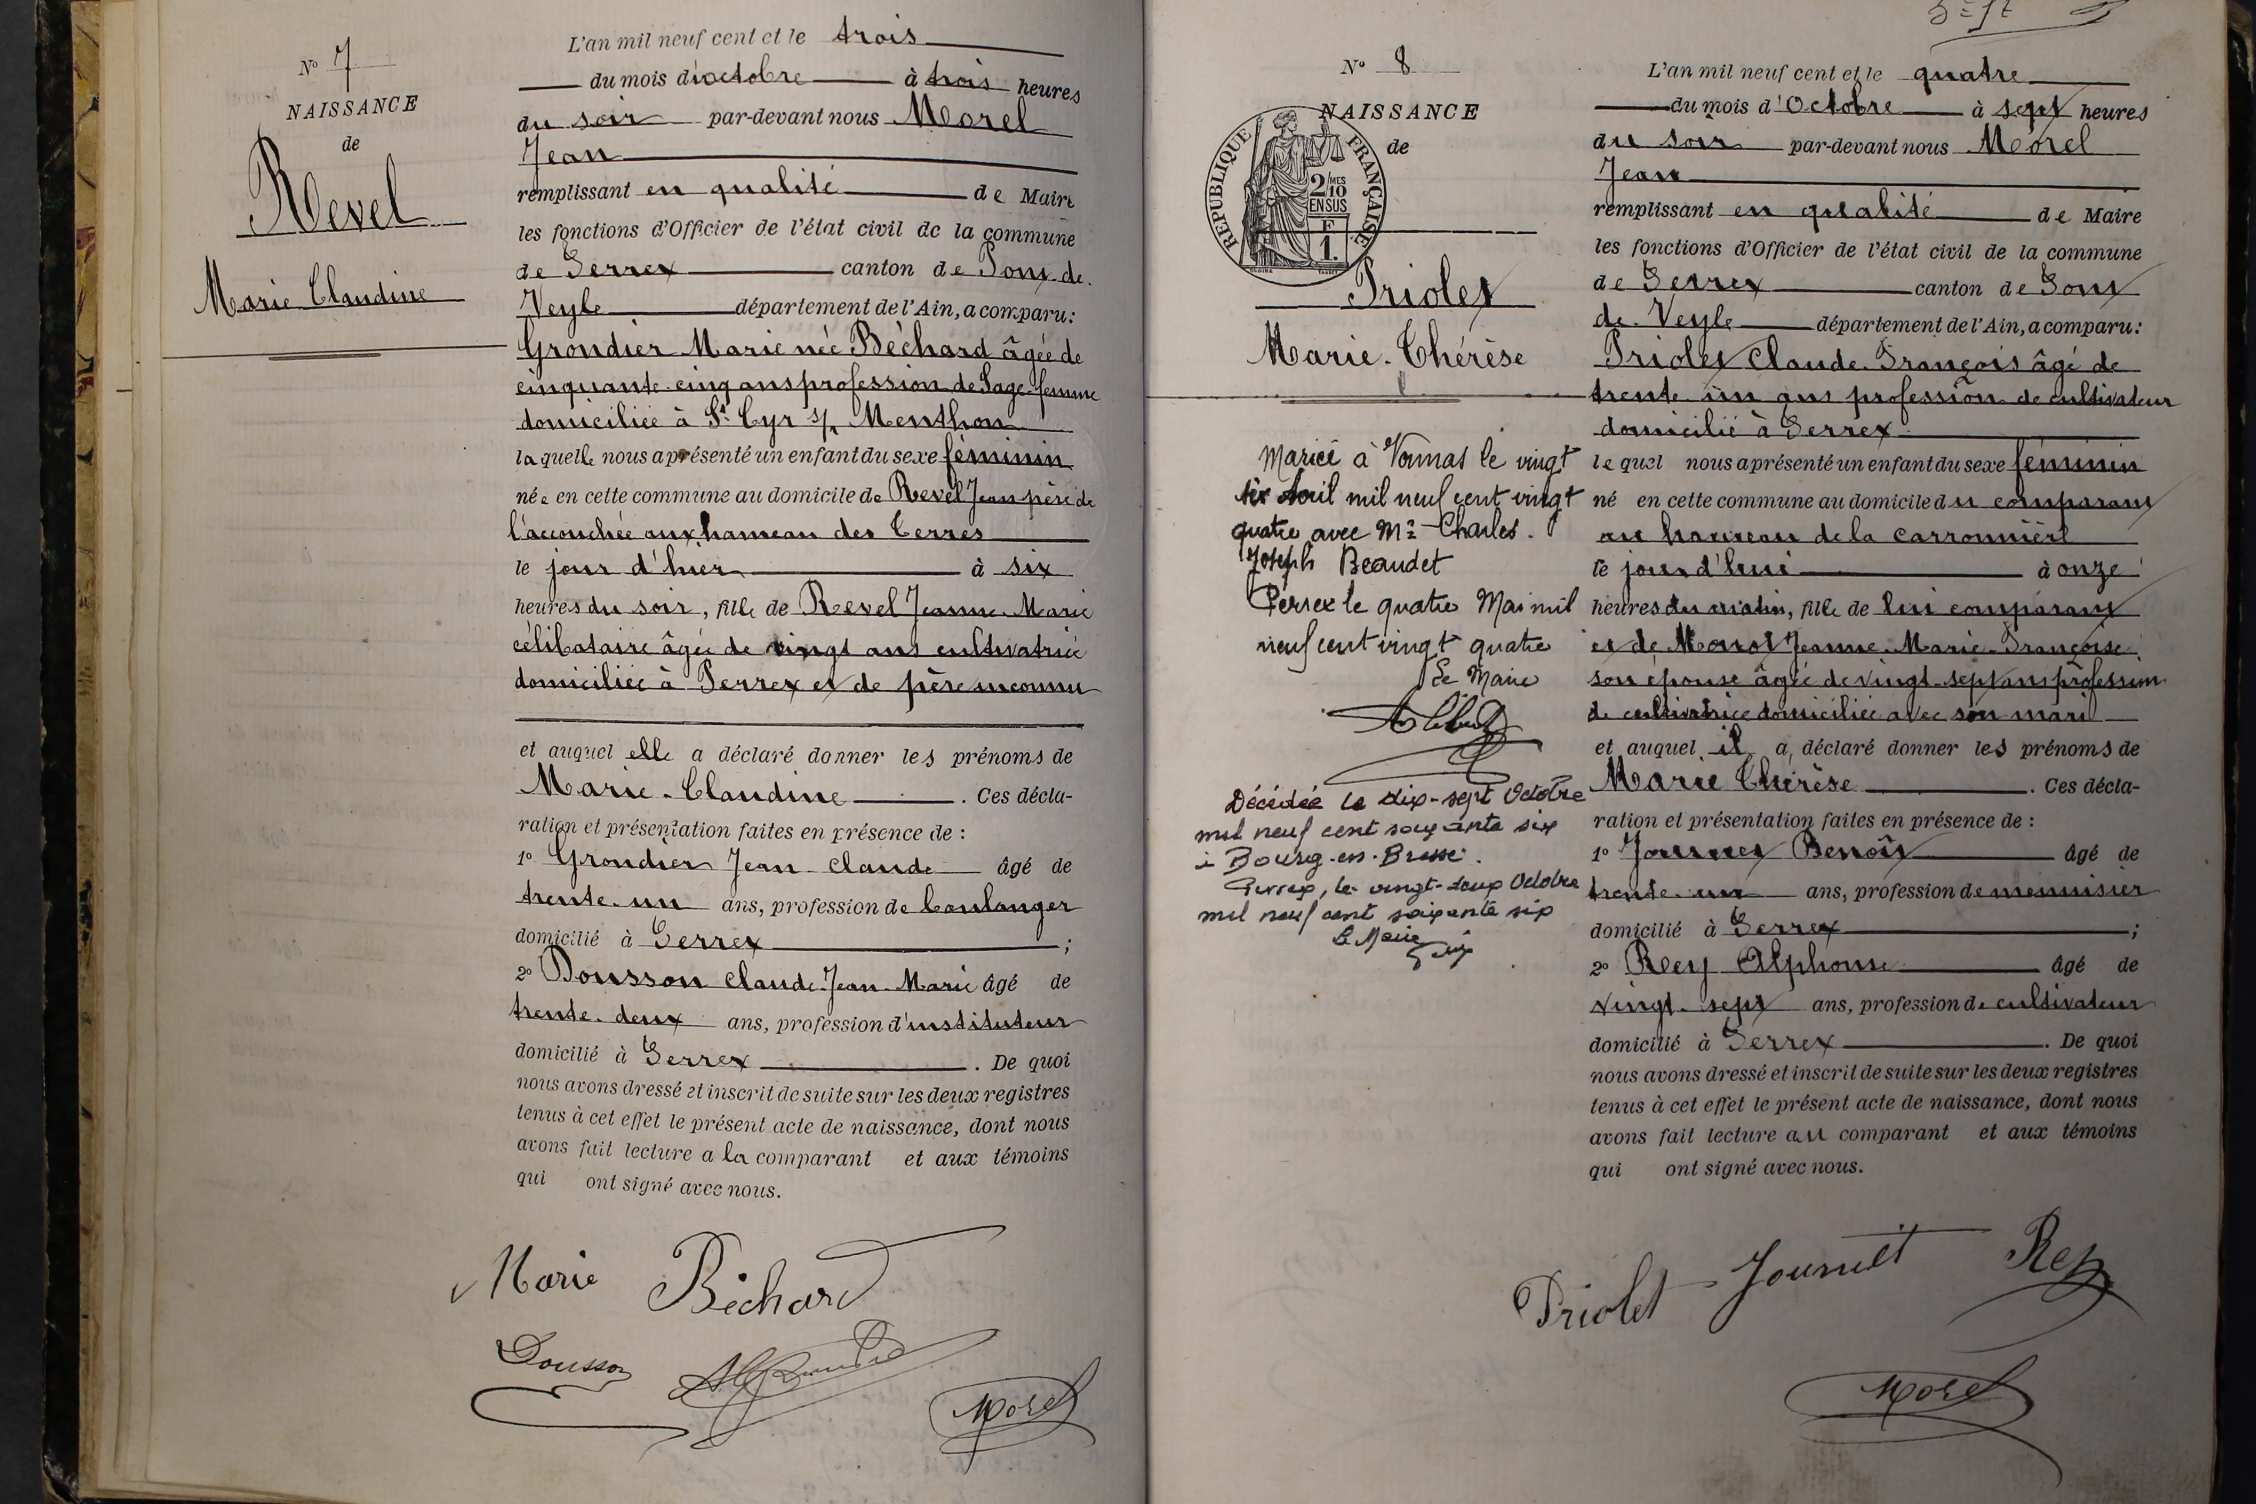 N° 7
NAISSANCE
de
Revel
Marie Claudine
L'an mil neuf cent et le trois
du mois d'octobre à trois heures
du soir par-devant nous Morel
Jean
remplissant en qualité de Maire
les fonctions d'Officier de l'état civil de la commune
de Perrex canton de Pont-de-
Veyle département de l'Ain, a comparu:
Grondier Marie née Béchard âgée de
cinquante-cinq ans profession de Sage-femme
domiciliée à St Cyr s/ Menthon
laquelle nous a présenté un enfant du sexe féminin
née en cette commune au domicile de Revel Jean père de
l'accouchée aux hameau des Terres
le jour d'hier à six
heures du soir, fille de Revel Jeanne-Marie
célibataire âgée de vingt ans cultivatrice
domiciliée à Perrex et de père inconnu
et auquel elle a déclaré donner les prénoms de
Marie-Claudine. Ces décla-
ration et présentation faites en présence de :
1° Grondier Jean-Claude âgé de
trente-un ans, profession de boulanger
domicilié à Perrex ;
2° Dousson Claude-Jean-Marie âgé de
trente-deux ans, profession d'instituteur
domicilié à Perrex. De quoi
nous avons dressé et inscrit de suite sur les deux registres
tenus à cet effet le présent acte de naissance, dont nous
avons fait lecture a la comparant et aux témoins
qui ont signé avec nous.
Marie Béchard
Dousson
Morel
N° 8
NAISSANCE
de
REPUBLIQUE FRANÇAISE
2/MES
10
EN SUS
F
1.
Priolet
Marie-Thérèse
Mariée à Vonnas le vingt
six Avril mil neuf cent vingt
quatre avec Mr Charles-
Joseph Beaudet
Perrex le quatre Mai mil
neuf cent vingt quatre
Le Maire
Décédée le dix-sept Octobre
mil neuf cent soixante six
à Bourg-en-Bresse.
Perrex, le vingt-deux Octobre
mil neuf cent soixante six
Le Maire
L'an mil neuf cent et le quatre
du mois d'Octobre à sept heures
du soir par-devant nous Morel
Jean
remplissant en qualité de Maire
les fonctions d'Officier de l'état civil de la commune
de Perrex canton de Pont
de-Veyle département de l'Ain, a comparu:
Priolet Claude-François âgé de
trente-un ans profession de cultivateur
domicilié à Perrex
lequel nous a présenté un enfant du sexe féminin
né en cette commune au domicile du comparant
au hameau de la Carronnière
le jour d'hui à onze
heures du matin, fille de lui comparant
et de Jeanne-Marie-Françoise
son épouse âgée de vingt-sept ans profession
de cultivatrice domiciliée avec son mari
et auquel il a déclaré donner les prénoms de
Marie Thérèse. Ces décla-
ration et présentation faites en présence de :
1° Journet Benoît âgé de
trente-un ans, profession de menuisier
domicilié à Perrex ;
2° Rey Alphonse âgé de
vingt-sept ans, profession de cultivateur
domicilié à Perrex. De quoi
nous avons dressé et inscrit de suite sur les deux registres
tenus à cet effet le présent acte de naissance, dont nous
avons fait lecture au comparant et aux témoins
qui ont signé avec nous.
Priolet Journet Rey
Morel